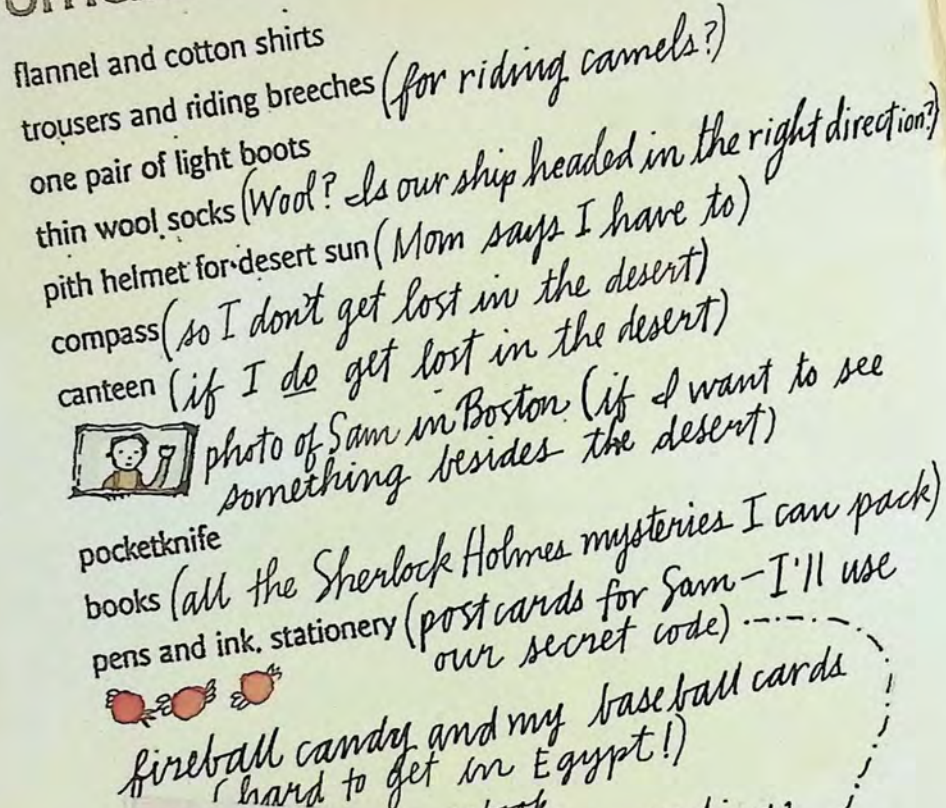 flannel and cotton shirts
trousers and riding breeches (for riding camels?)
one pair of light boots
thin wool socks (Wool? Is our ship headed in the right direction?)
pith helmet for desert sun (Mom says I have to)
compass (so I don't get lost in the desert)
canteen (if I do get lost in the desert)
photo of Sam in Boston (if I want to see
something besides the desert)
pocketknife
books (all the Sherlock Holmes mysteries I can pack)
pens and ink, stationery (postcards for Sam—I'll use
our secret code)
fireball candy and my baseball cards
(hard to get in Egypt!)